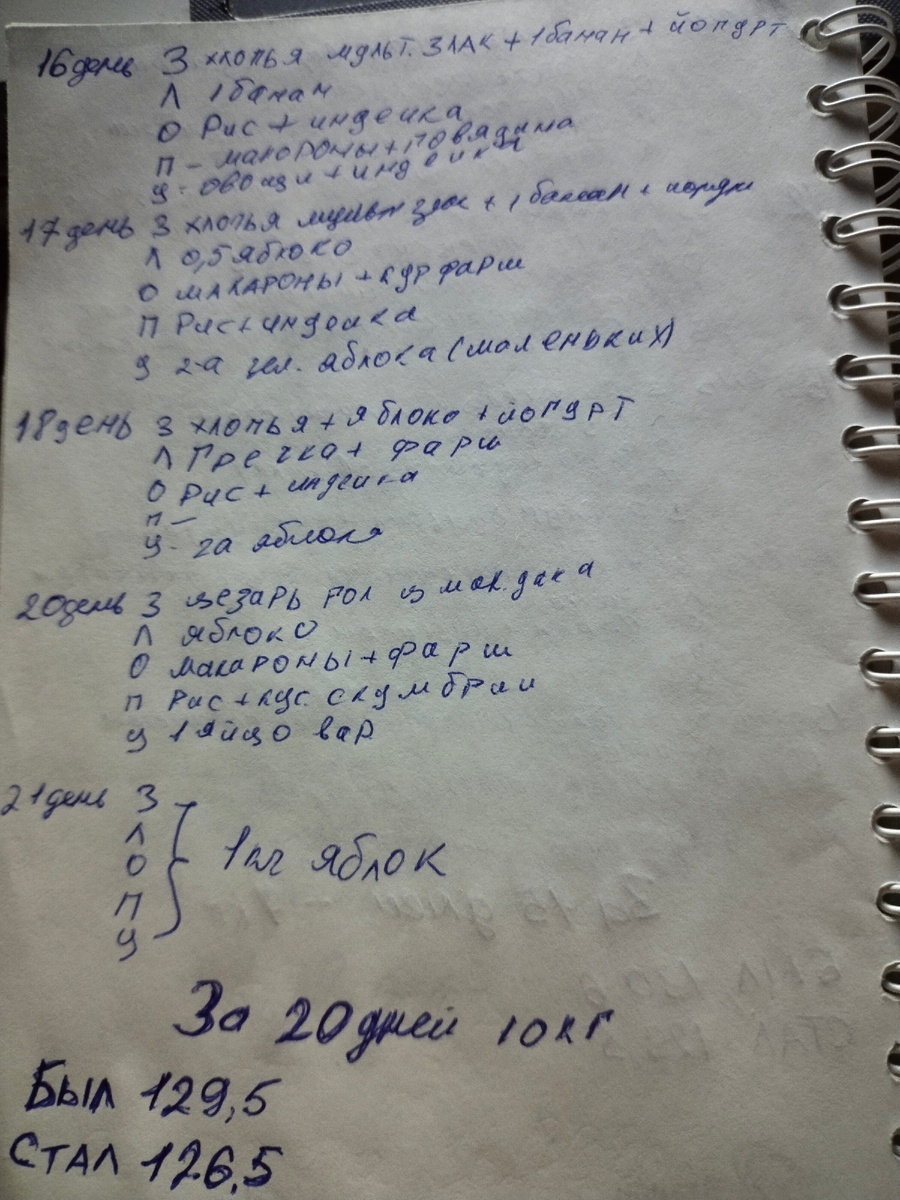 16 день З хлопья мульт. злак + 1 банан + йогурт
Л 1 банан
О Рис + индейка
П - макароны + говядина
У - овощи + индейка
17 день З хлопья мульт злак + 1 банан + йогурт
Л 0,5 яблоко
О макароны + кур фарш
П Рис + индейка
У 2-а зел. яблока (маленьких)
18 день З хлопья + яблоко + йогурт
Л Гречка + фарш
О Рис + индейка
П -
У - 2а яблока
20 день З цезарь рол из мак. дака
Л яблоко
О макароны + фарш
П Рис + кус. скумбрии
У 1 яйцо вар
21 день З
Л
О 1 кг яблок
П
У
За 20 дней 10 кг
Был 129,5
Стал 126,5